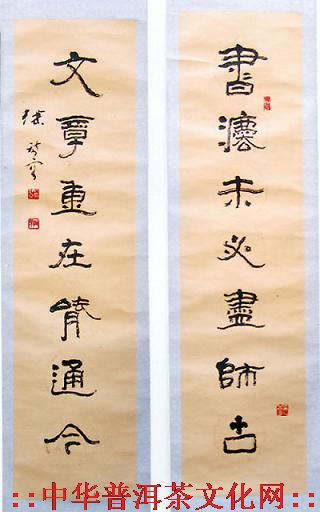 書灋未必盡師古
文章重在能通今
::中华普洱茶文化网::